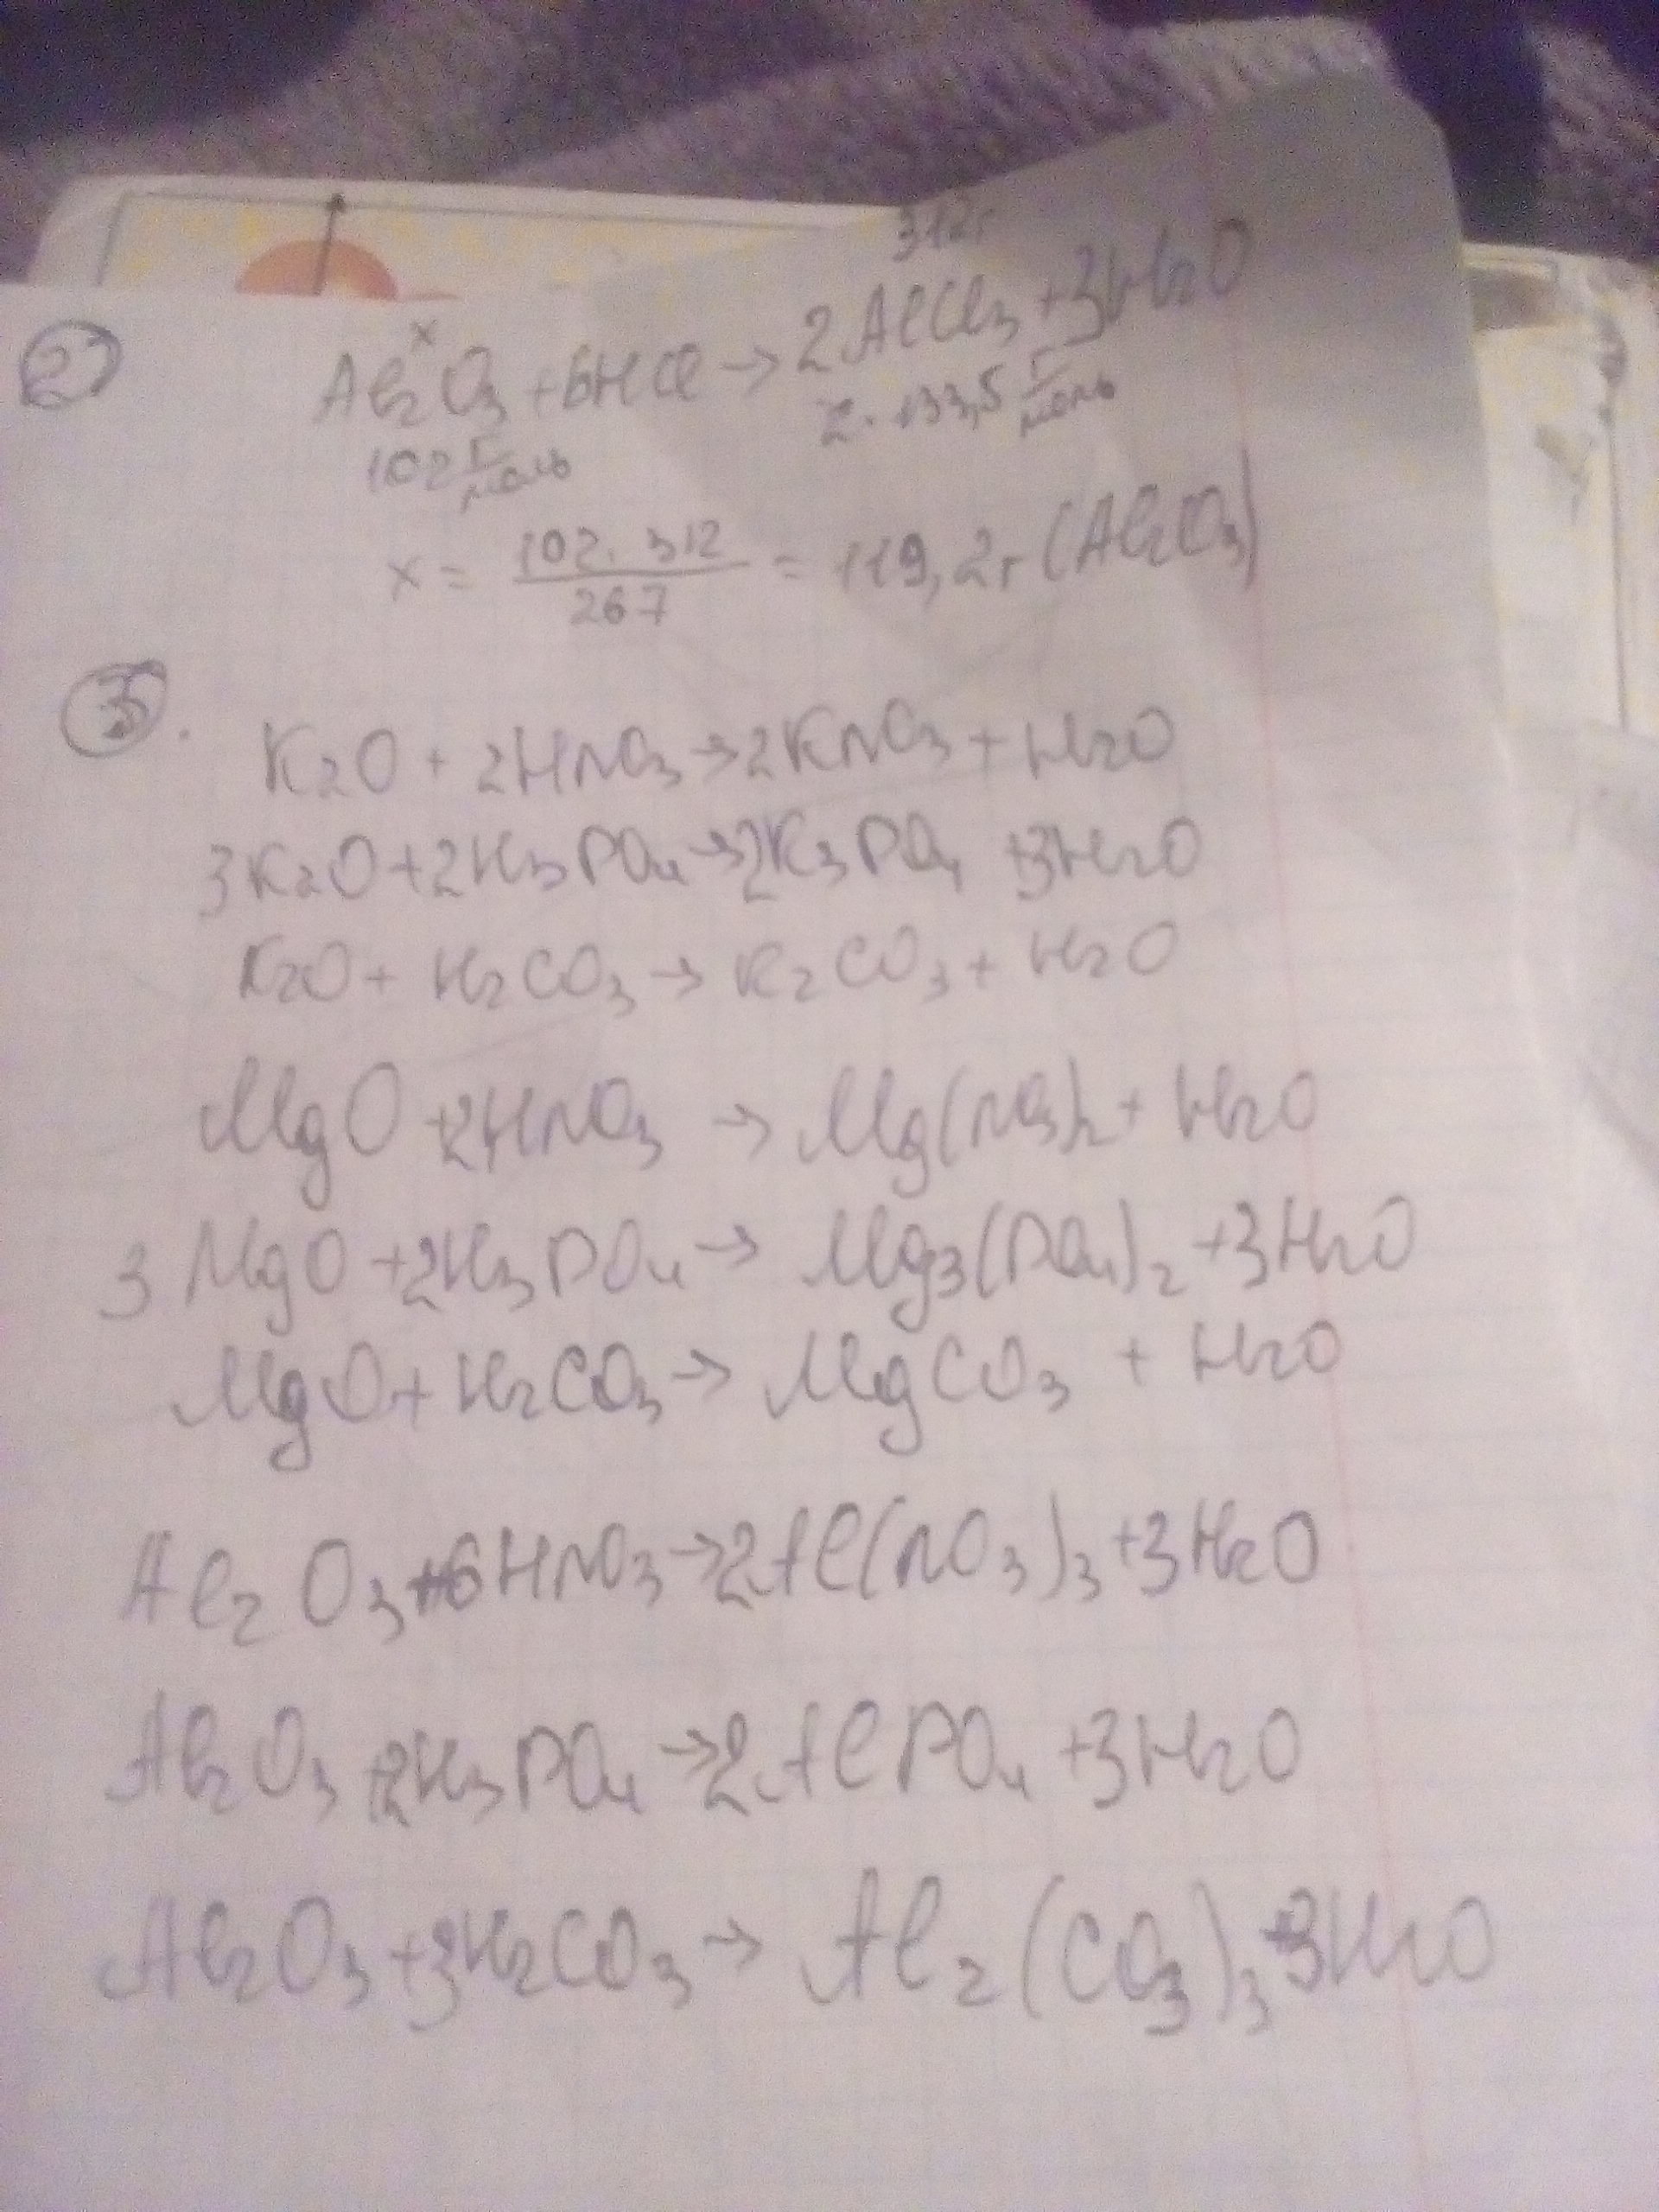 2)
x 312г
Al2O3 + 6HCl → 2AlCl3 + 3H2O
102 г/моль 2·133,5 г/моль
x = 102·312/267 = 119,2г (Al2O3)
3.
K2O + 2HNO3 → 2KNO3 + H2O
3K2O + 2H3PO4 → 2K3PO4 + 3H2O
K2O + H2CO3 → K2CO3 + H2O
MgO + 2HNO3 → Mg(NO3)2 + H2O
3MgO + 2H3PO4 → Mg3(PO4)2 + 3H2O
MgO + H2CO3 → MgCO3 + H2O
Al2O3 + 6HNO3 → 2Al(NO3)3 + 3H2O
Al2O3 + 2H3PO4 → 2AlPO4 + 3H2O
Al2O3 + 3H2CO3 → Al2(CO3)3 + 3H2O